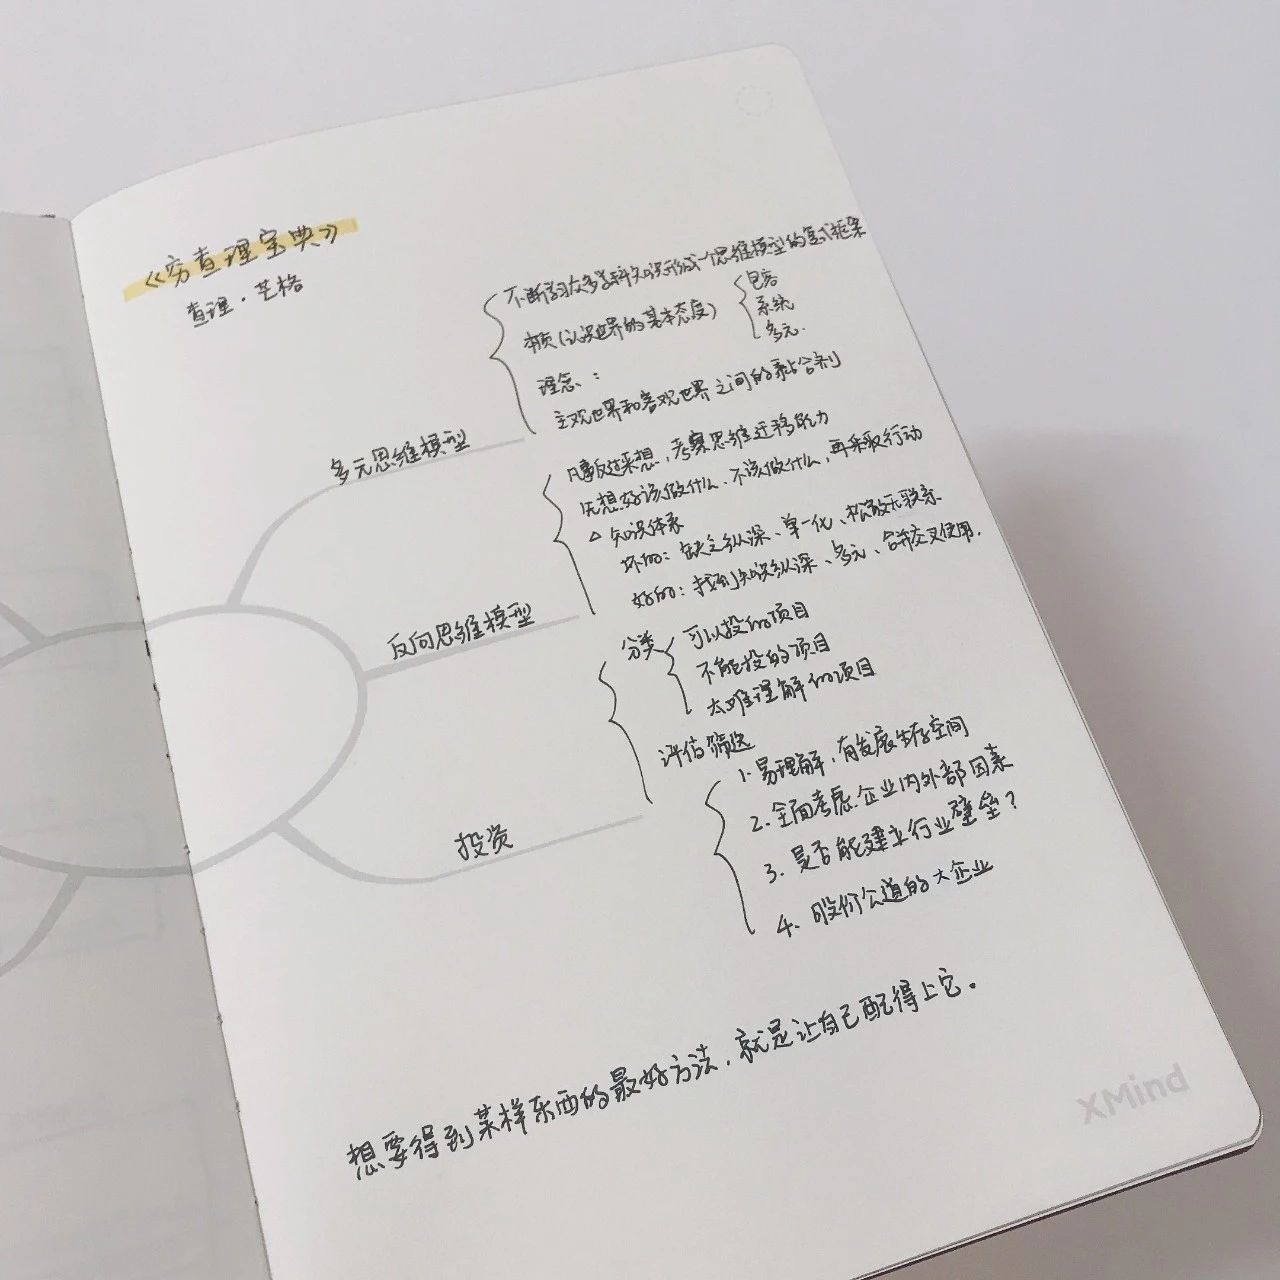 《穷查理宝典》
查理·芒格
多元思维模型
不断学习众多学科知识形成一个思维模型的复式框架
本质(认识世界的基本态度)
包容
系统
多元.
理念:
主观世界和客观世界之间的黏合剂
反向思维模型
凡事反过来想,考察思维迁移能力
先想好该做什么、不该做什么,再采取行动
△ 知识体系
坏的:缺乏纵深、单一化、松散无联系
好的:找到知识纵深、多元、合并交叉使用.
投资
分类
可以投的项目
不能投的项目
太难理解的项目
评估筛选
1.易理解,有发展生存空间
2.全面考虑企业内外部因素
3.是否能建立行业壁垒?
4.股价公道的大企业
想要得到某样东西的最好方法,就是让自己配得上它。
XMind